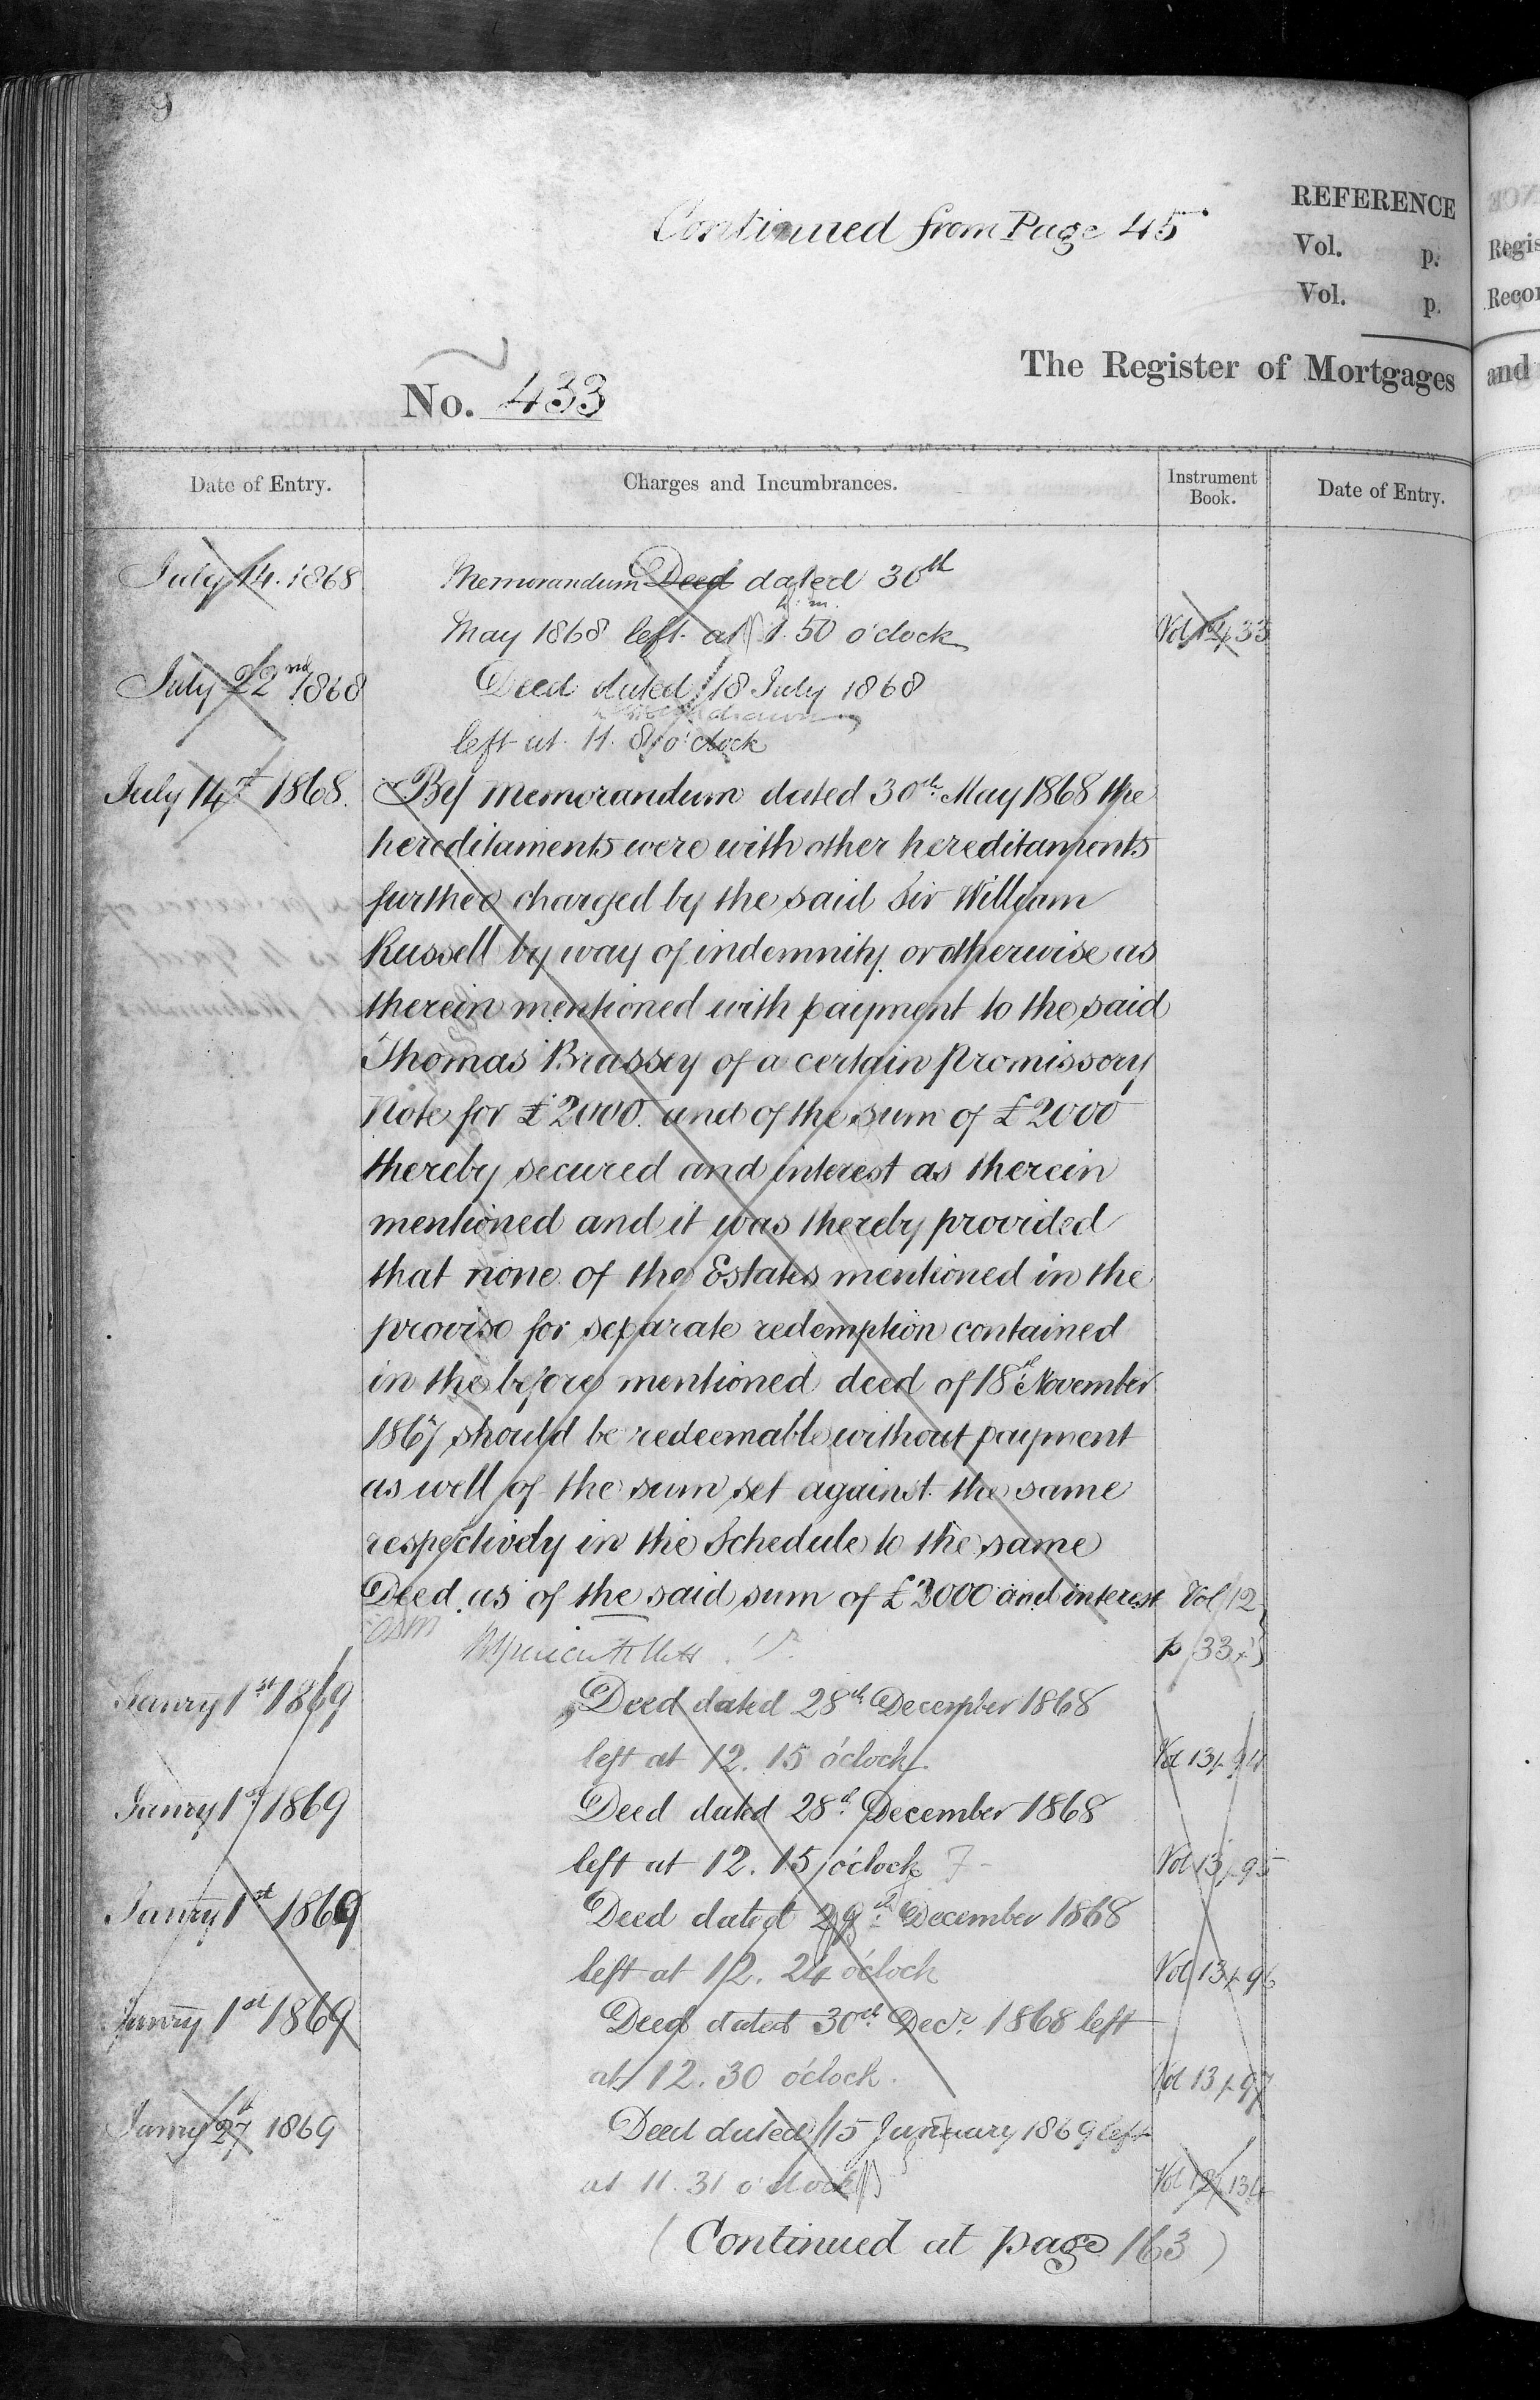 9
Continued from Page 45
REFERENCE
Vol. p.
Vol. p.
The Register of Mortgages
No. 433
Date of Entry. Charges and Incumbrances. Instrument Book. Date of Entry.
July 14. 1868 Memorandum Deed dated 30th
h. m.
May 1868 left at 1.50 o'clock Vol 12/33
July 22nd 1868 Deed dated 18 July 1868
withdrawn
left at 11. 8 o'clock
July 14 1868. By Memorandum dated 30th May 1868 the
hereditaments were with other hereditaments
further charged by the said Sir William
Russell by way of indemnity or otherwise as
therein mentioned with payment to the said
Thomas Brassey of a certain Promissory
Note for £2000. and of the sum of £2000
thereby secured and interest as therein
mentioned and it was thereby provided
that none of the Estates mentioned in the
proviso for separate redemption contained
in the before mentioned deed of 18th November
1867 should be redeemable without payment
as well of the sum set against the same
respectively in the Schedule to the same
Deed as of the said sum of £2000 and interest Vol 12
p 33
Janry 1st 1869 Deed dated 28th December 1868
left at 12. 15 o'clock Vol 13/94
Janry 1st 1869 Deed dated 28th December 1868
left at 12. 15 o'clock Vol 13/95
Janry 1st 1869 Deed dated 29th December 1868
left at 12. 24 o'clock Vol 13/96
Janry 1st 1869 Deed dated 30th Decr 1868 left
at 12. 30 o'clock. Vol 13/97
Janry 27 1869 Deed dated 15 January 1869 left
at 11. 31 o'clock
(Continued at page 163)
Regis
Recor
and